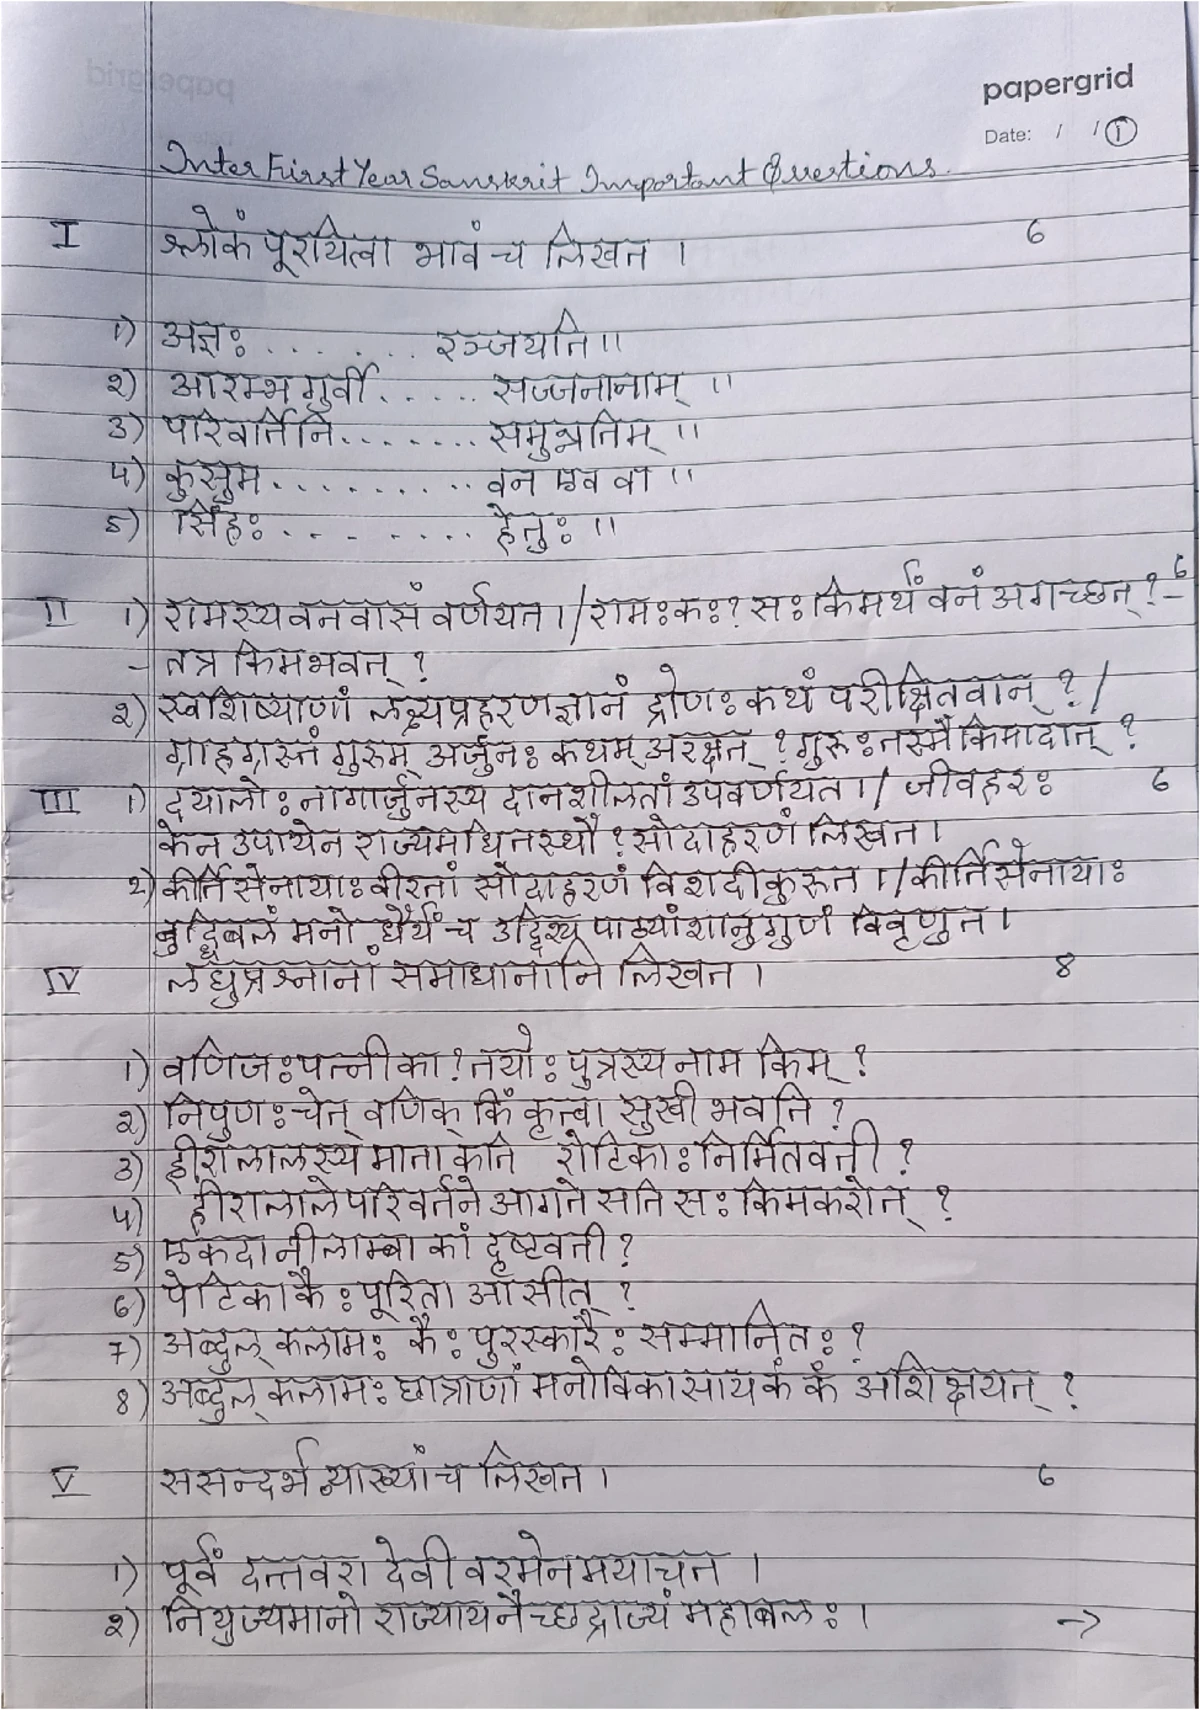 papergrid
Date: / / ①
Inter First Year Sanskrit Important Questions.
I श्लोकं पूरयित्वा भावं च लिखत । 6
1) अज्ञः ....... रञ्जयति ॥
२) आरम्भगुर्वी ...... सज्जनानाम् ॥
3) परिवर्तिनि ........ समुन्नतिम् ॥
4) कुसुम .......... वन एव वा ॥
5) सिंहः ......... हेतुः ॥
II 1) रामस्य वनवासं वर्णयत । / रामः कः ? सः किमर्थं वनं अगच्छत् ? - 6
- तत्र किमभवत् ?
२) स्वशिष्याणां लक्ष्यप्रहरणज्ञानं द्रोणः कथं परीक्षितवान् ? /
ग्राहग्रस्तं गुरुम् अर्जुनः कथम् अरक्षत् ? गुरुः तस्मै किमादात् ?
III 1) दयालोः नागार्जुनस्य दानशीलतां उपवर्णयत । / जीवहरः 6
केन उपायेन राज्यमधितस्थौ ? सोदाहरणं लिखत ।
२) कीर्तिसेनायाः वीरतां सोदाहरणं विशदीकुरुत । / कीर्तिसेनायाः
बुद्धिबलं मनोधैर्यं च उद्दिश्य पाठ्यांशानुगुणं विवृणुत ।
IV लघुप्रश्नानां समाधानानि लिखत । 8
1) वणिजः पत्नी का ? तयोः पुत्रस्य नाम किम् ?
२) निपुणः चेत् वणिक् किं कृत्वा सुखी भवति ?
3) हीरालालस्य माता कति रोटिकाः निर्मितवती ?
4) हीरालाले परिवर्तने आगते सति सः किमकरोत् ?
5) एकदा नीलाम्बा कां दृष्टवती ?
6) पेटिका कैः पूरिता आसीत् ?
7) अब्दुल् कलामः कैः पुरस्कारैः सम्मानितः ?
8) अब्दुल् कलामः छात्राणां मनोविकासाय कं कं अशिक्षयत् ?
V ससन्दर्भ व्याख्यां च लिखत । 6
1) पूर्वं दत्तवरा देवी वरमेनमयाचत ।
२) नियुज्यमानो राज्याय नैच्छद्राज्यं महाबलः । →